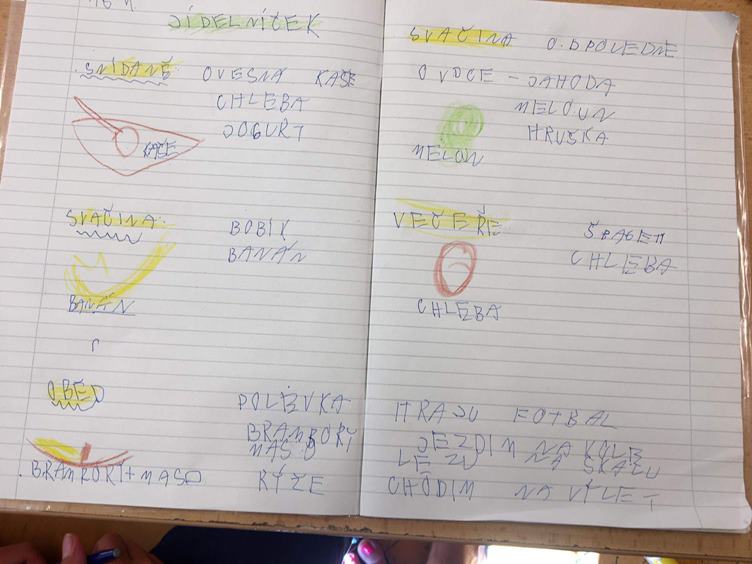 JÍDELNÍČEK
SNÍDANĚ: OVESNÁ KAŠE
CHLEBA
JOGURT
KAŠE
SVAČINA: BOBÍK
BANÁN
BANÁN
OBĚD POLÉVKA
BRAMBORÍ
MASO
BRAMBORÍ+MASO RÝŽE
SVAČINA ODPOLEDNE
OVOCE - JAHODA
MELOUN
HRUŠKA
MELOUN
VEČEŘE: ŠPAGETI
CHLEBA
CHLEBA
HRAJU FOTBAL
JEZDIM NA KOLE
LEZU NA SKÁLU
CHODIM NA VÝLET